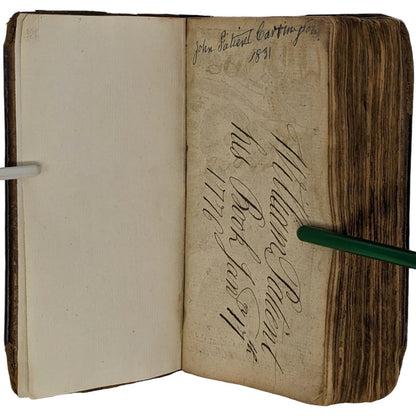 John Patient Cartington
1891
William Patient
his Book Jan 17th
1776